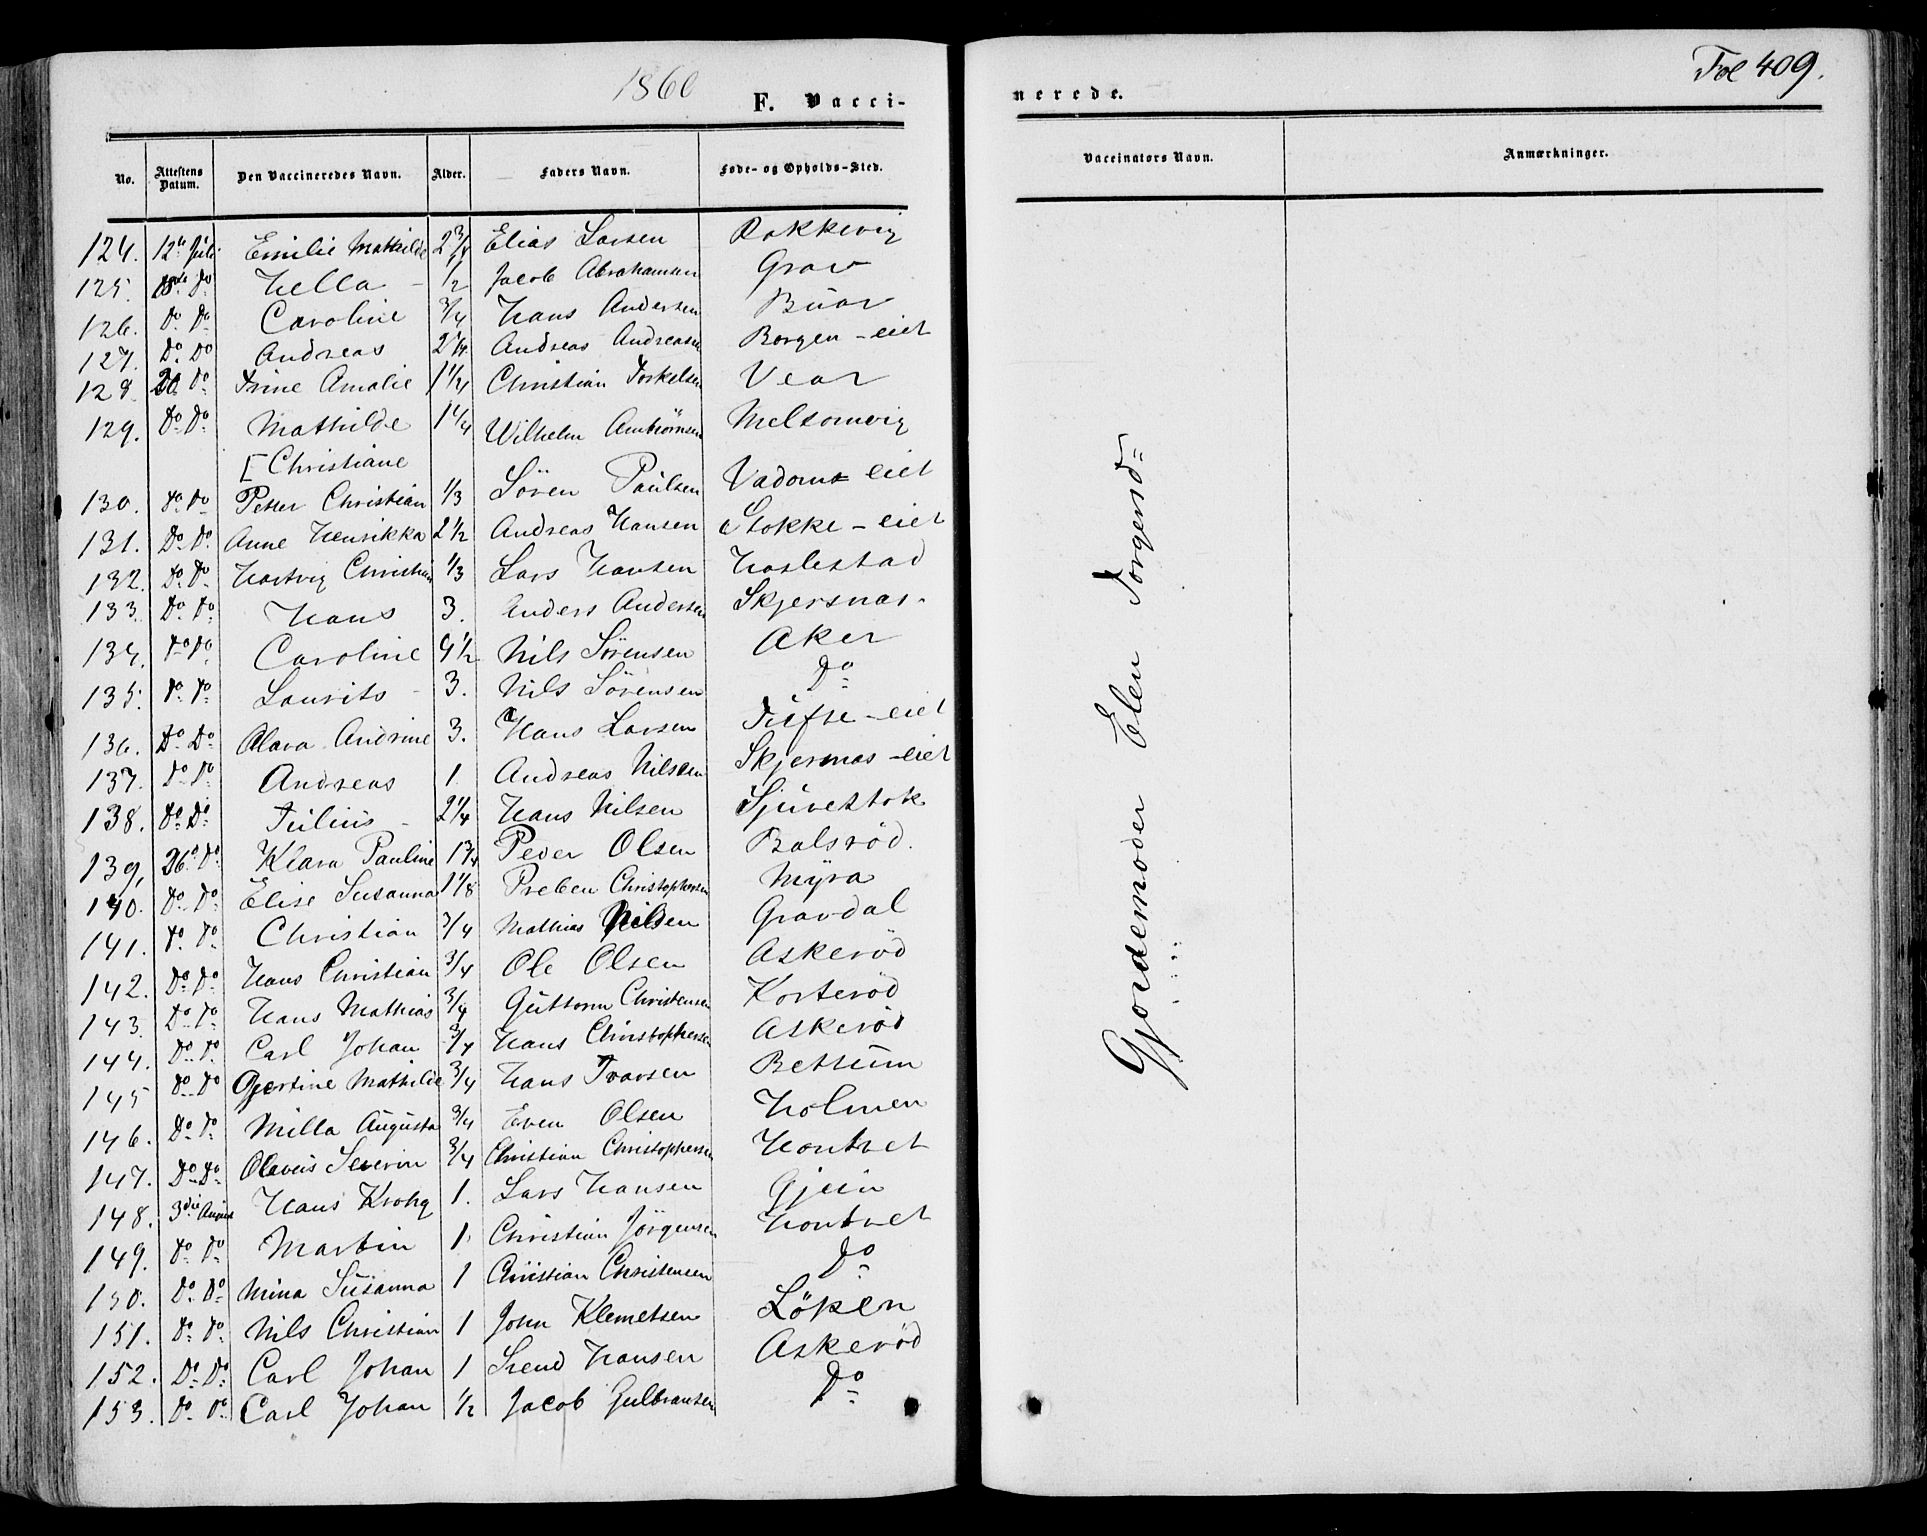 1860
F. Vacci-
No. Attestens Datum. Den Vaccineredes Navn. Alder. Faders Navn. Føde- og Opholds-Sted.
124. 12te Juli Emilie Mathilde 2 3/4 Elias Larsen Rakkevig
125. Do Hella - 1/2 Jacob Abrahamsen Grav
126. Do Do Caroline 3/4 Hans Andersen Buar
127. Do Do Andreas 2 1/4 Andreas Andreasen Borgen - eiet
128. 20 Do Trine Amalie 1 1/4 Christian Torkelsen Vear
129. Do Do Mathilde 1 1/4 Wilhelm Ambiörnsen Melsomvig
[Christiane
130. Do Do Petter Christian 1/3 Sören Paulsen Vadoms eiet
131. Do Do Anne Henrikka 2 1/2 Andreas Hansen Stokke - eiet
132. Do Do Hartvig Christian 1/3 Lars Hansen Haslestad
133. Do Do Hans 3. Anders Andersen Skjersnas -
134. Do Do Caroline 4 1/2 Nils Sörensen Aker
135. Do Do Laurits - 3. Nils Sörensen Do
136. Do Do Alava Andrine 3. Hans Larsen Tufte - eiet
137. Do Do Andreas 1 Andreas Nilsen Skjersnas - eiet
138. Do Do Julius - 2 1/4 Hans Nilsen Sjuvestok
139, 26 Do Klara Pauline 1 3/4 Peder Olsen Balsröd.
140. Do Do Elise Susanna 1 1/8 Preben Christophersen Myra
141. Do Do Christian 3/4 Mathias Nilsen Gravdal
142. Do Do Hans Christian 3/4 Ole Olsen Askeröd
143. Do Do Hans Mathias 3/4 Guttorm Christensen Korteröd
144. Do Do Carl Johan 3/4 Hans Christophersen Askeröd
145 Do Do Gjertine Mathilde 3/4 Hans Ivarsen Bettum
146. Do Do Milla Augusta 3/4 Even Olsen Holmen
147. Do Do Olaves Severin 3/4 Christian Christophersen Hontvet
148. 3die August Hans Krohg 1. Lars Hansen Gjein
149. Do Do Martin 1. Christian Jörgensen Hontvet
150. Do Do Mina Susanna 1 Christian Christensen Do
151. Do Do Nils Christian 1 John Klemetsen Löken
152. Do Do Carl Johan 1 Svend Hansen Askeröd
153. Do Do Carl Johan 1/2 Jacob Gulbransen Do
Fol 409.
nerede.
Vaccinators Navn. Anmærkninger.
Gjordemoder Elen Torgersd